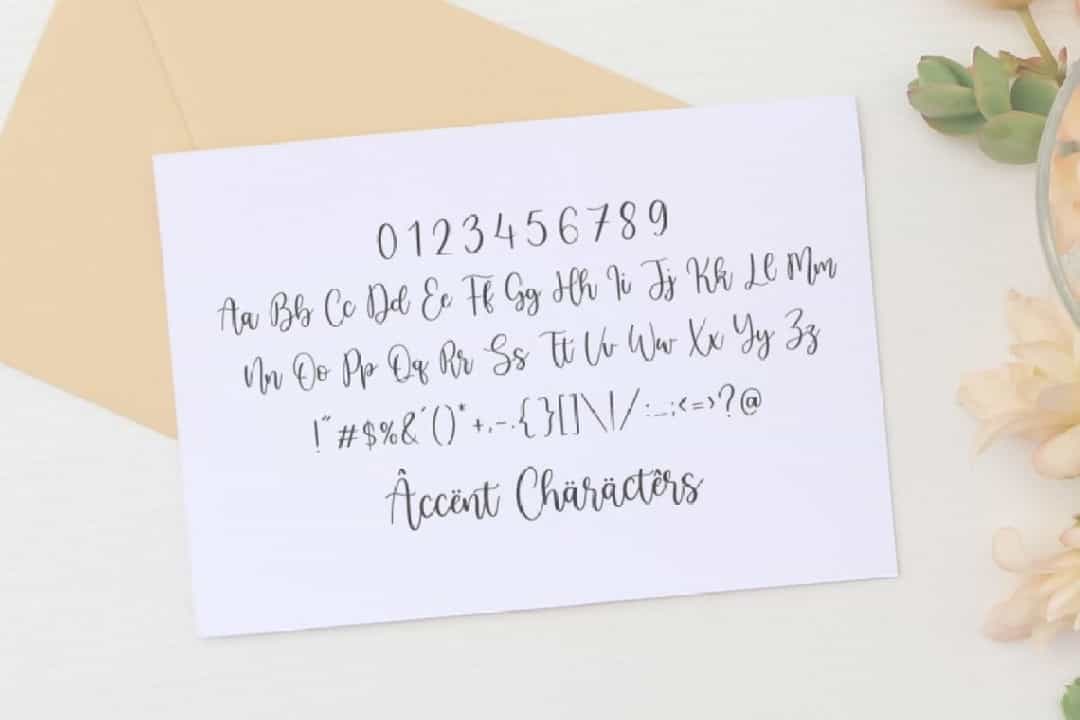 0 1 2 3 4 5 6 7 8 9
Aa Bb Cc Dd Ee Ff Gg Hh Ii Jj Kk Ll Mm
Nn Oo Pp Qq Rr Ss Tt Uu Vv Ww Xx Yy Zz
!"#$%&'()*+,-.{}[]\|/:_;<=>?@
Âccënt Chäräctêrs